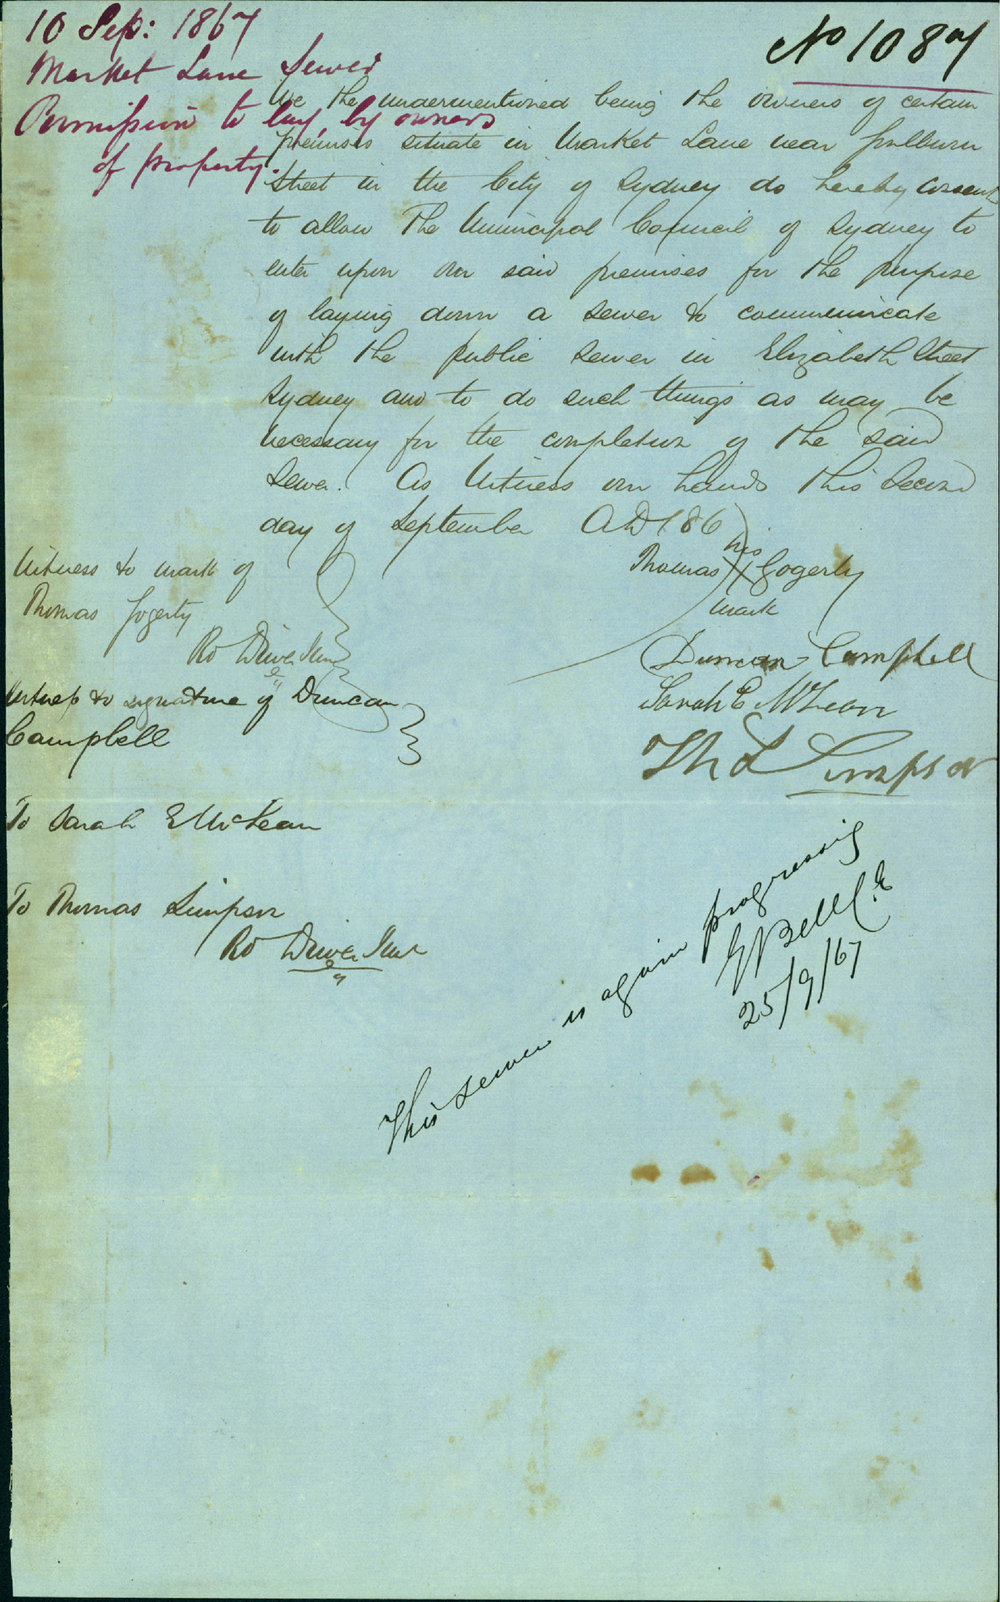 10 Sep: 1867
Market Lane Sewer
Permission to lay, by owners
of property.
No 1087
We the undermentioned being the owners of certain
premises situate in Market Lane near Goulburn
Street in the City of Sydney do hereby consent
to allow The Municipal Council of Sydney to
enter upon our said premises for the purpose
of laying down a sewer to communicate
with the public sewer in Elizabeth Street
Sydney and to do such things as may be
necessary for the completion of the said
Sewer. As Witness our hands this Second
day of September AD 186
Witness to mark of
Thomas Fogerty
Ro
his
Thomas X Fogerty
mark
Duncan Campbell
Sarah E McLean
Thos Simpson
Witness to signature of Duncan
Campbell
To Sarah E McLean
To Thomas Simpson
Ro
This sewer is again progressing
Bell C.E
25/9/67